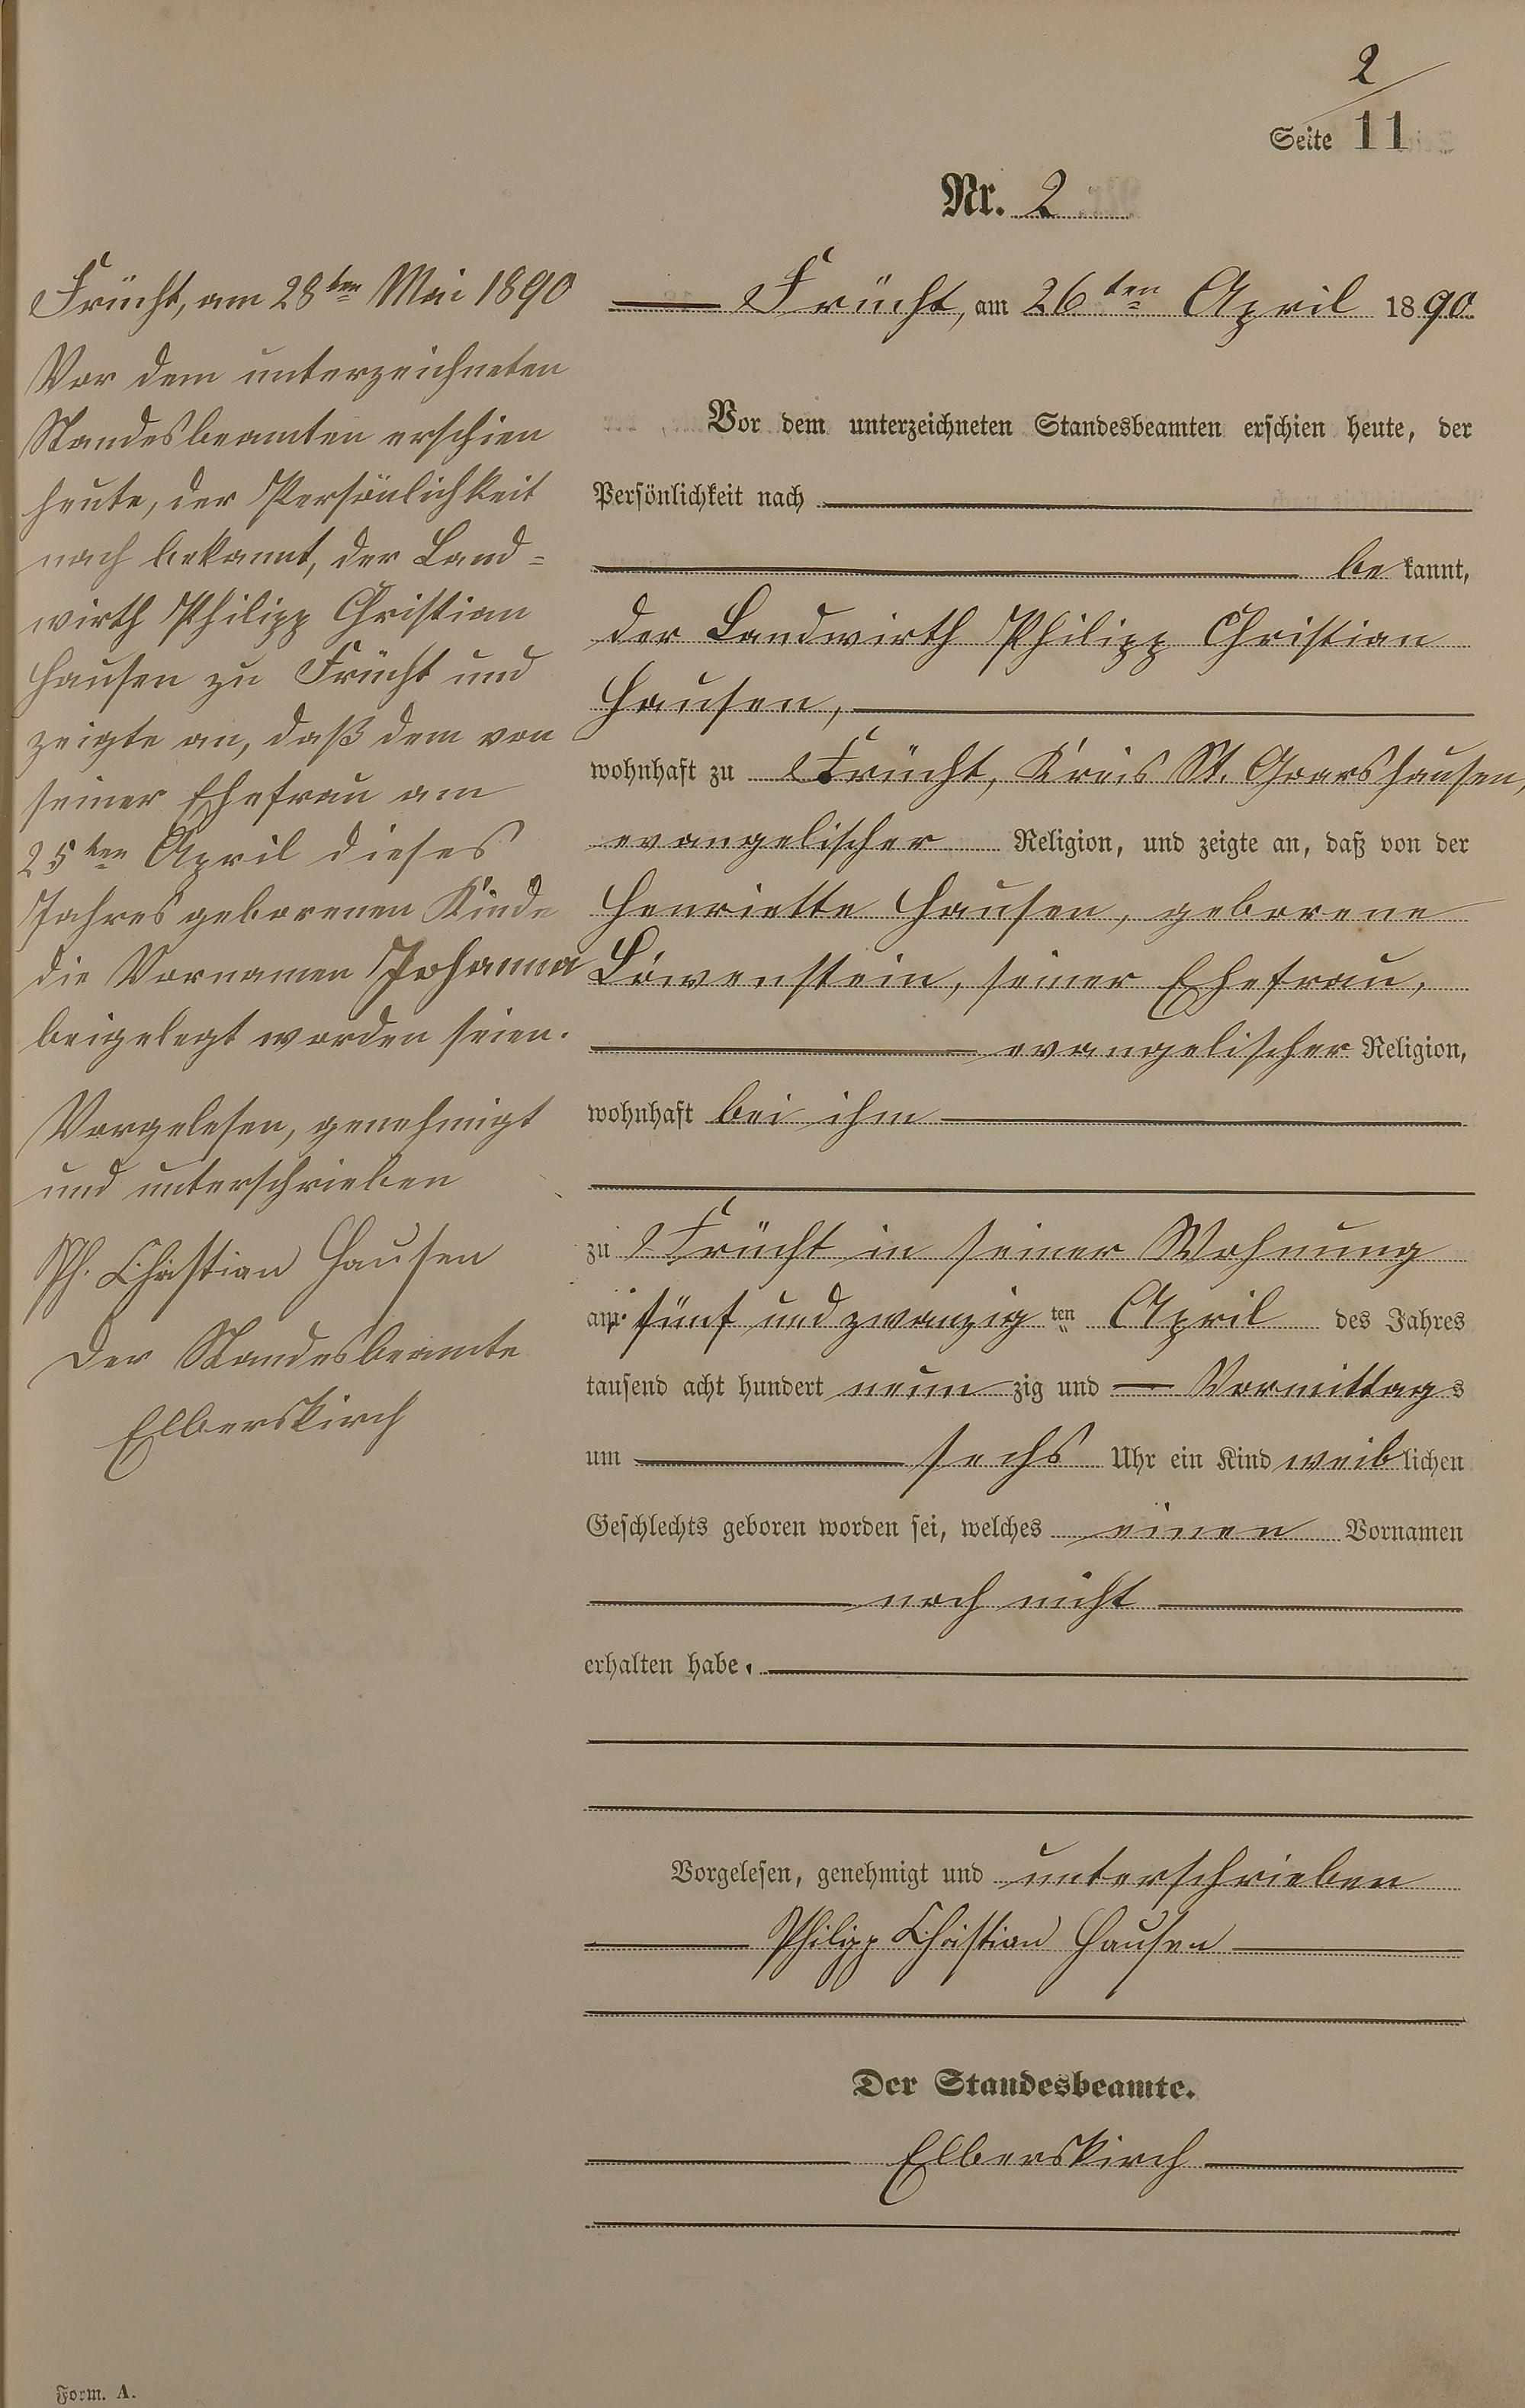 2
Seite 11
Nr. 2
Frücht, am 28ten Mai 1890
Vor dem unterzeichneten
Standesbeamten erschien
heute, der Persönlichkeit
nach bekannt, der Land=
wirth Philipp Christian
Hausen zu Frücht und
zeigte an, daß dem von
seiner Ehefrau am
25ten April dieses
Jahres geborenen Kinde
die Vornamen Johanna
beigelegt worden seien.
Vorgelesen, genehmigt
und unterschrieben
Ph. Christian Hausen
Der Standesbeamte
Elberskirch
Frücht, am 26ten April 1890.
Vor dem unterzeichneten Standesbeamten erschien heute, der
Persönlichkeit nach
bekannt,
der Landwirth Philipp Christian
Hausen,
wohnhaft zu Frücht, Kreis St. Goarshausen,
evangelischer Religion, und zeigte an, daß von der
Henriette Hausen, geborene
Löwenstein, seiner Ehefrau,
evangelischer Religion,
wohnhaft bei ihm
zu Frücht in seiner Wohnung
am fünf und zwanzigten April des Jahres
tausend acht hundert neunzig und — Vormittags
um sechs Uhr ein Kind weiblichen
Geschlechts geboren worden sei, welches einen Vornamen
noch nicht
erhalten habe.
Vorgelesen, genehmigt und unterschrieben
Philipp Christian Hausen
Der Standesbeamte.
Elberskirch
Form. A.